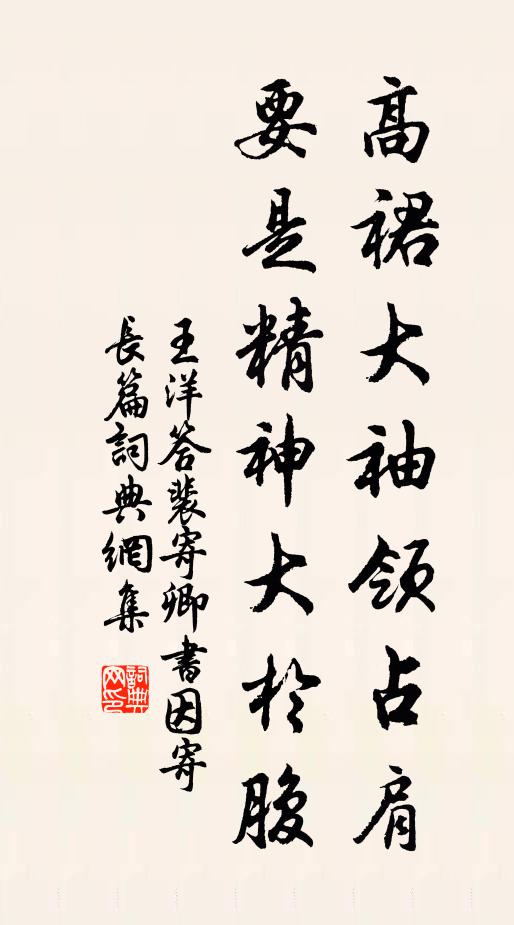 高裙大袖領占肩
要是精神大於腹
王洋答裴寄卿書因寄
長篇詞典網集
詞典網印